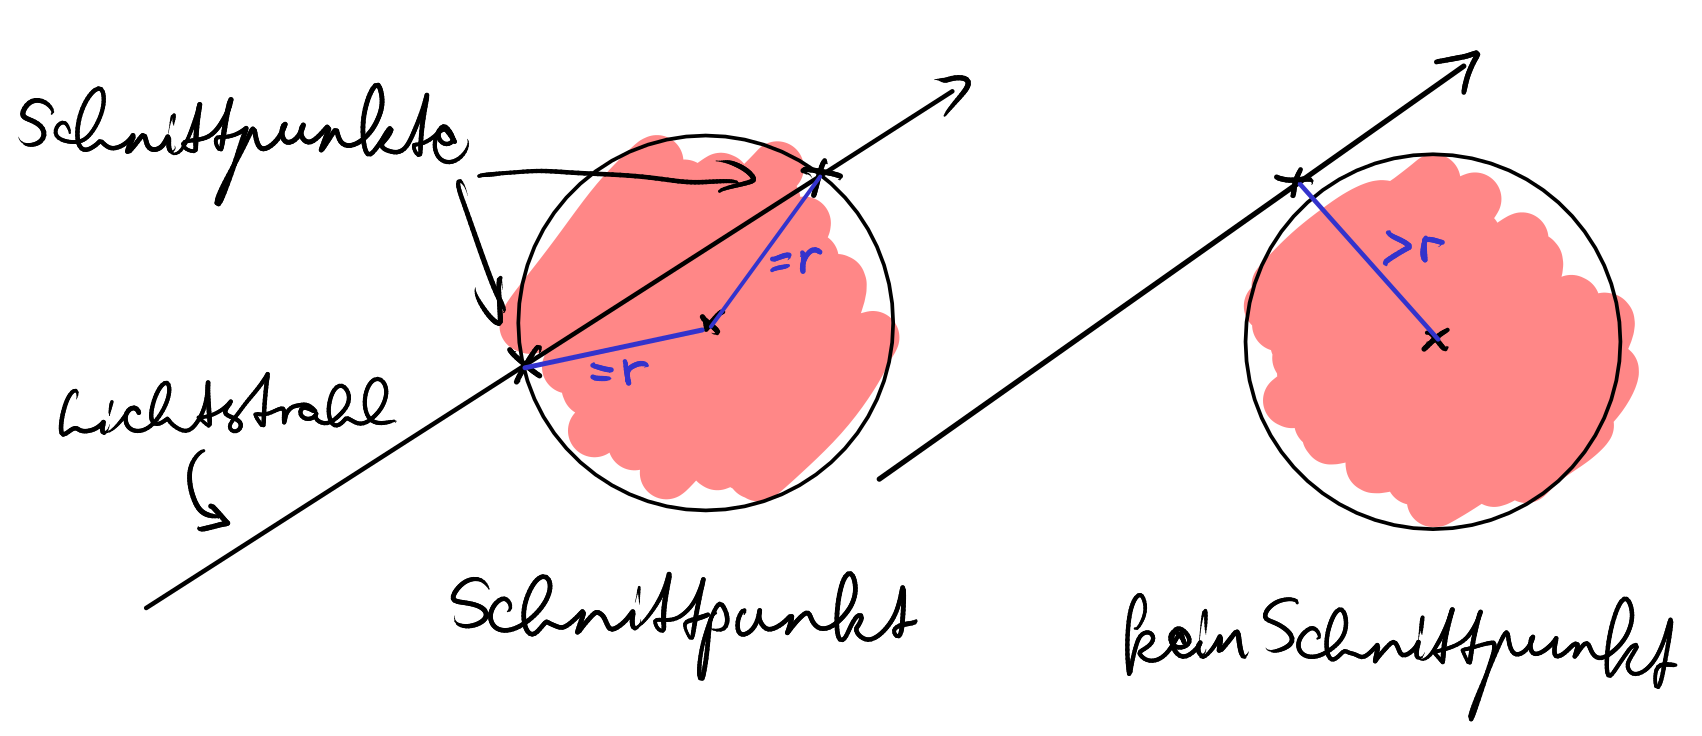 Schnittpunkte
=r
=r
Lichtstrahl
Schnittpunkt
>r
kein Schnittpunkt